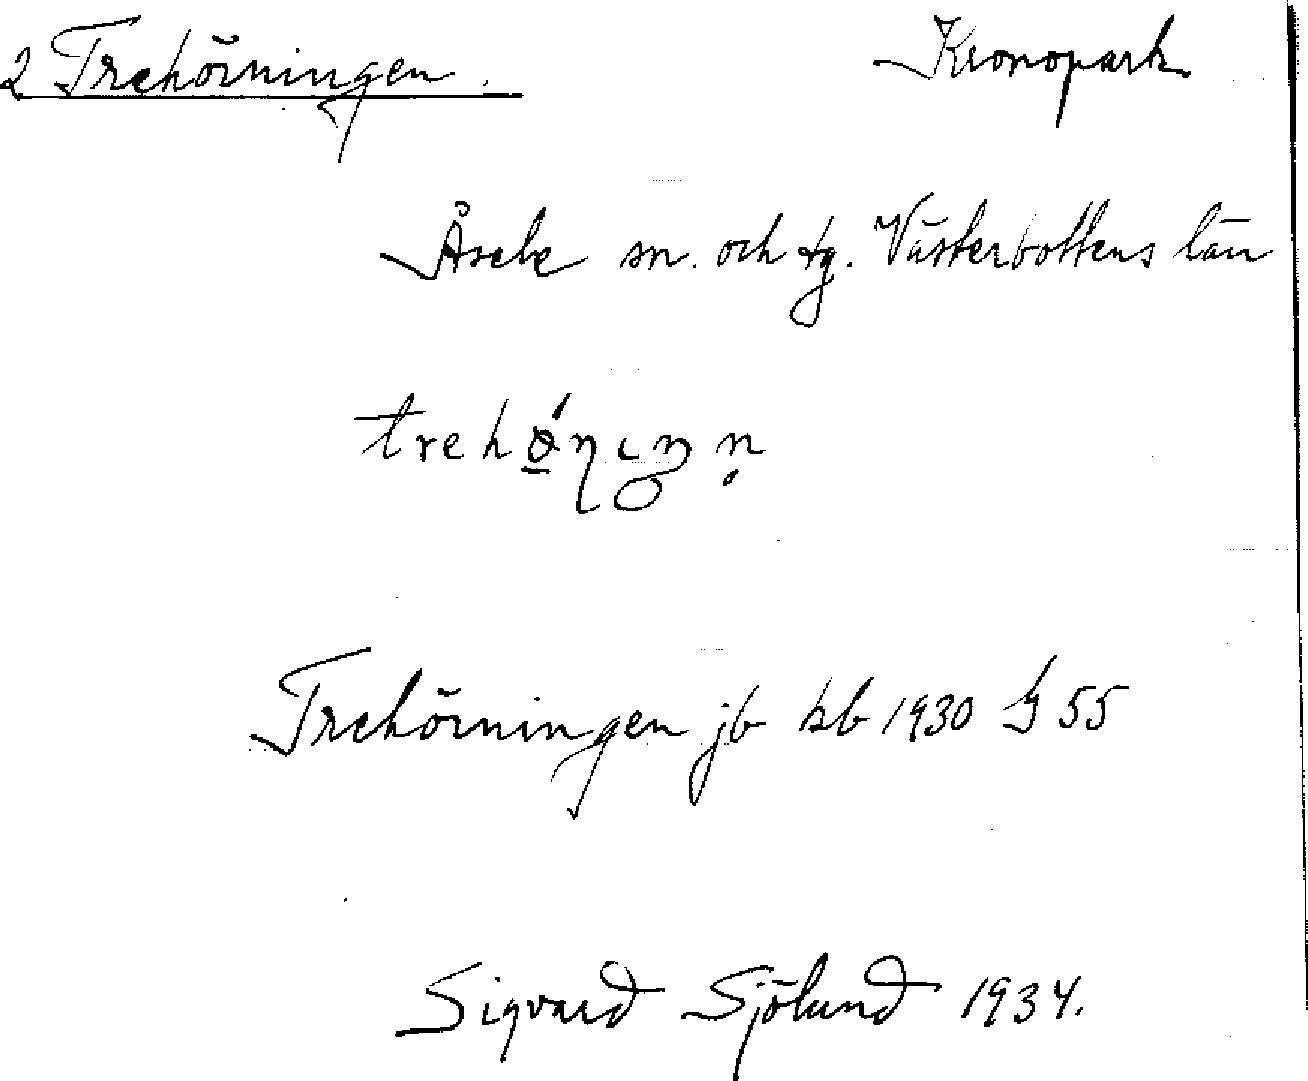 2 Trehörningen. Kronopark
Åsele sn. och tg. Västerbottens län
Trehörningen jb kb 1930 § 55
Sigvard Sjölund 1934.